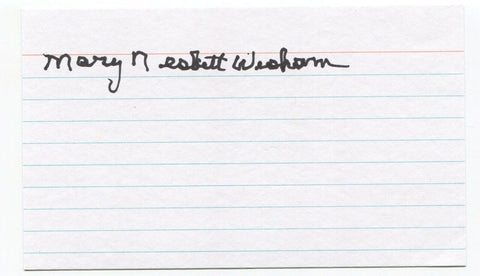 Mary Nesbitt Wisham